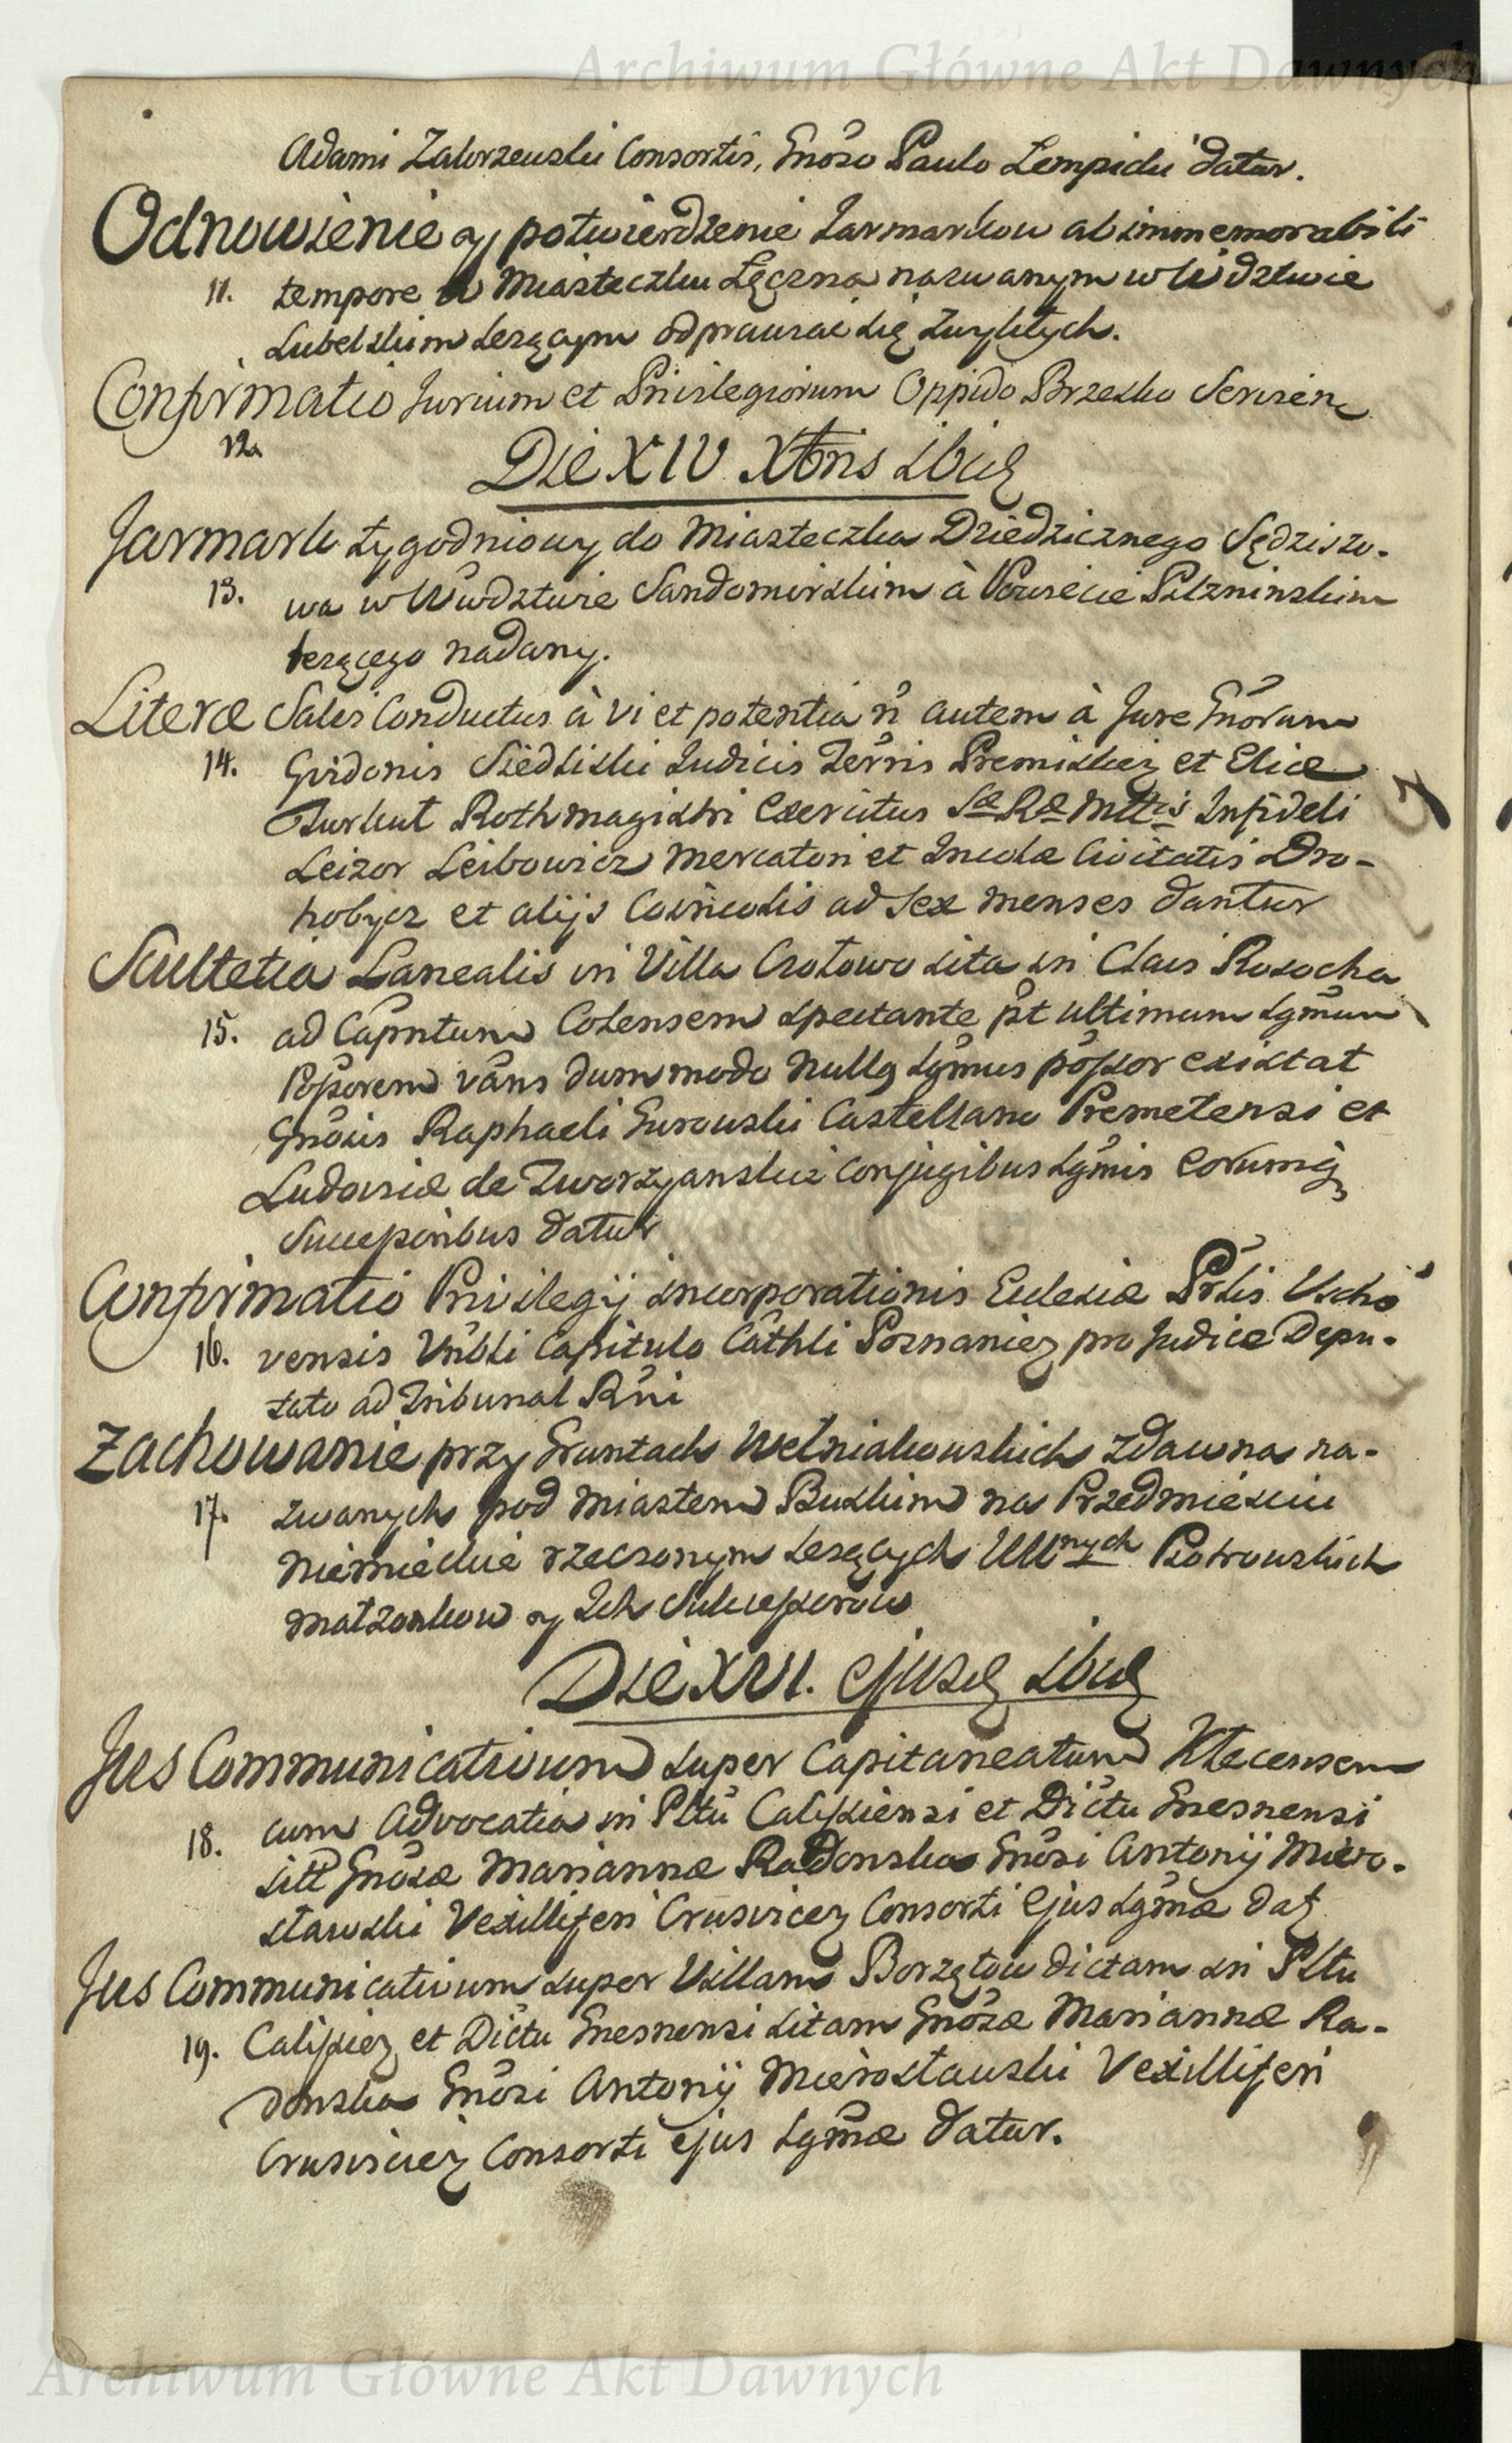 Archiwum Główne Akt Dawnych
Adami Zakrzewski Consortis, Gnoso Paulo Lempicki datur.
Odnowienie y potwierdzenie Jarmarkow ab immemorabili
11. tempore w Miasteczku Łęczna nazwanym w Wdztwie
Lubelskim lezącym odprawiać się zwykłych.
Confirmatio Jurium et Privilegiorum Oppido Brzesko Servien
12.
Die XIV Xbris ibid
Jarmark tygodniowy do Miasteczka Dziedzicznego Sędziszo-
13. wa w Wwdztwie Sandomirskim à Powiecie Pilzninskim
lezącego nadany.
Literæ Salvi Conductus à vi et potentia n autem à Jure Gnorum
14. Gvidonis Siedliski Judicis Terris Premislien et Eliæ
Turkut Rothmagistri Exercitus Sæ Ræ Mttis Infideli
Leizor Leibowicz Mercatori et Incolæ Civitatis Dro-
hobycz et alijs Coincolis ad Sex menses dantur
Scultetia Lanealis in Villa Crotowo sita in Clavi Rosocha
15. ad Capntum Colensem spectante pt ultimum Lgmum
Possorem vans dummodo nullg Lgmus possor existat
Gnosis Raphaeli Gurowski Castellano Premetensi et
Ludoviæ de Tworzyanskie Conjugibus Lgmis eorumq
Successoribus datur
Confirmatio Privilegij incorporationis Ecclesiæ Prlis Uscho
16. vensis Vnbli Capitulo Cathli Posnanien pro Judice Depu-
tato ad Tribunal Rni
Zachowanie przy Gruntach Wełniakowskich zdawna na-
17. zwanych pod Miastem Buskim na Przedmiesciu
Niemieckie rzeczonym lezących UUnych Piotrowskich
Małzonkow y Ich Sukcessorow
Die XVI. ejusd ibid
Jus Communicativum super Capitaneatum Klecensem
18. cum Advocatia in Pltu Calissiensi et Dictu Gnesnensi
sitt Gnosæ Mariannæ Radonska Gnosi Antonij Miero-
sławski Vexilliferi Crusvicen Consorti Ejus Lgmæ dat
Jus Communicativum super Villam Borzątow dictam in Pltu
19. Calissien et Dictu Gnesnensi sitam Gnosæ Mariannæ Ra-
donska Gnosi Antonij Mierosławski Vexilliferi
Crusvicien Consorti ejus Lgmæ datur.
Archiwum Główne Akt Dawnych